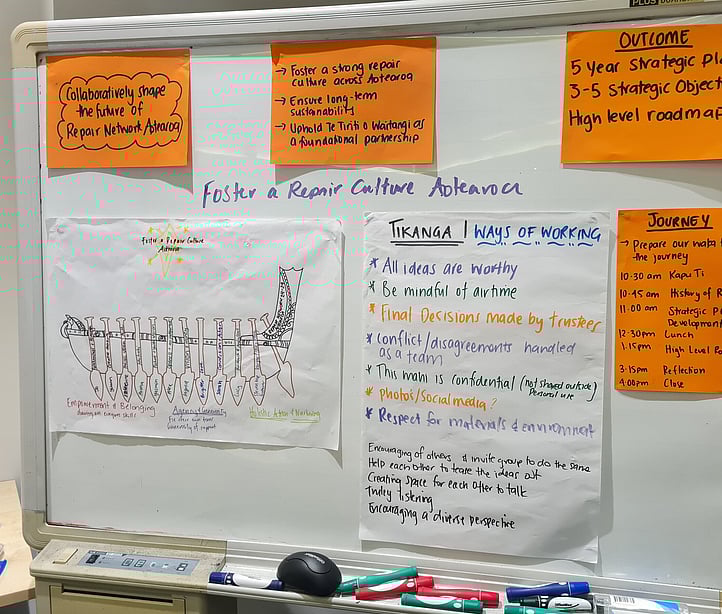 PLUS
Collaboratively shape
the future of
Repair Network Aotearoa
→ Foster a strong repair
culture across Aotearoa
→ Ensure long-term
sustainability
→ Uphold Te Tiriti o Waitangi as
a foundational partnership
OUTCOME
5 Year Strategic Pla
3-5 Strategic Object
High level roadmap
Foster a Repair Culture Aotearoa
Foster a Repair Culture
Aotearoa
Empowerment & Belonging
Agency & Community
TIKANGA | WAYS OF WORKING
* All ideas are worthy
* Be mindful of airtime
* Final Decisions made by trustees
* Conflict/disagreements handled
as a team
* This mahi is confidential (not shared outside)
Personal use
* photos/Social media?
* Respect for materials & environment
Encouraging of others & invite group to do the same
Help each other to tease the ideas out
Creating space for each other to talk
Truley listening
Encouraging a diverse perspective
JOURNEY
→ Prepare our waka f
the journey
10.30 am Kapu Ti
10.45 am History of R
11.00 am Strategic P
Developmen
12:30pm Lunch
1.15pm High Level Ro
3.15pm Reflection
4.00pm Close